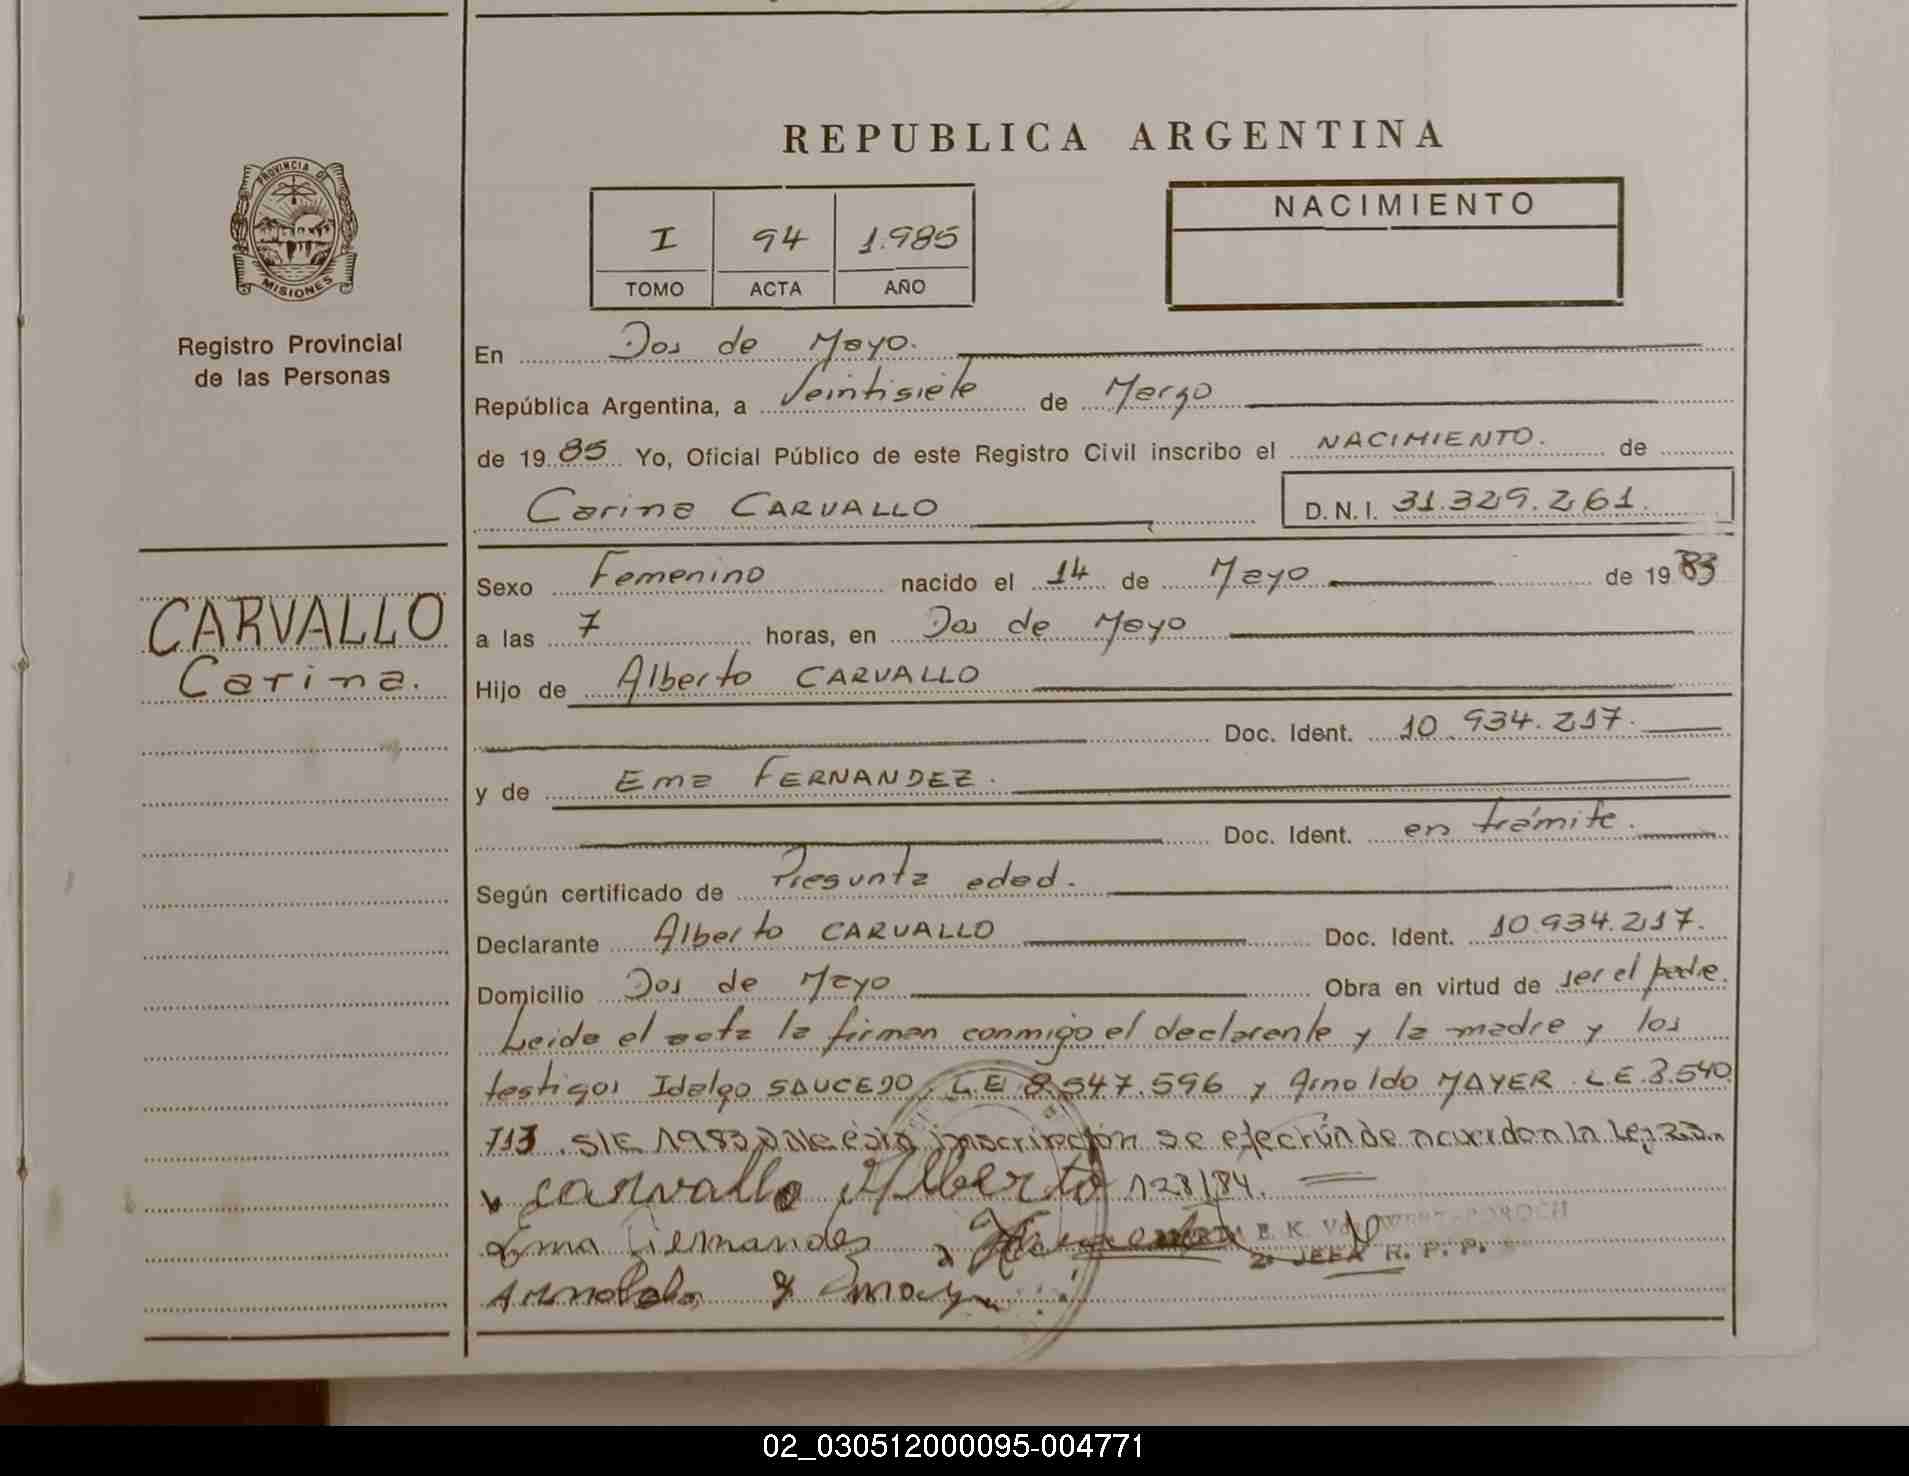 REPUBLICA ARGENTINA
PROVINCIA DE
MISIONES
Registro Provincial
de las Personas
I 94 1.985
TOMO ACTA AÑO
NACIMIENTO
En Dos de Mayo.
República Argentina, a Veintisiete de Marzo
de 1985 Yo, Oficial Público de este Registro Civil inscribo el NACIMIENTO. de
Carina CARVALLO D.N.I. 31.329.261.
CARVALLO
Carina.
Sexo Femenino nacido el 14 de Mayo de 1983
a las 7 horas, en Dos de Mayo
Hijo de Alberto CARVALLO
Doc. Ident. 10.934.217.
y de Ema FERNANDEZ.
Doc. Ident. en trámite.
Según certificado de Presunta edad.
Declarante Alberto CARVALLO Doc. Ident. 10.934.217.
Domicilio Dos de Mayo Obra en virtud de ser el padre.
Leida el acta la firman conmigo el declarante y la madre y los
testigos Idalgo SAUCEDO. L.E. 8.547.596 y Arnoldo MAYER L.E. 3.540.
713. S/E 1983 Vale esta inscripción se efectúa de acuerdo a la Ley 23.
128/84.
Carvallo Alberto
Ema Fernandez
E. K. V
2. JEFA R. P. P.
02_030512000095-004771